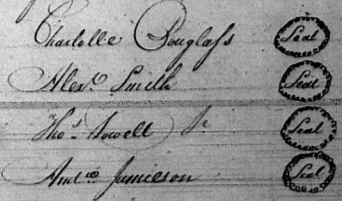 Charlotte Douglass Seal
Alexr. Smith Seal
Thos. Sowell Jr Seal
Andw. Jamieson Seal